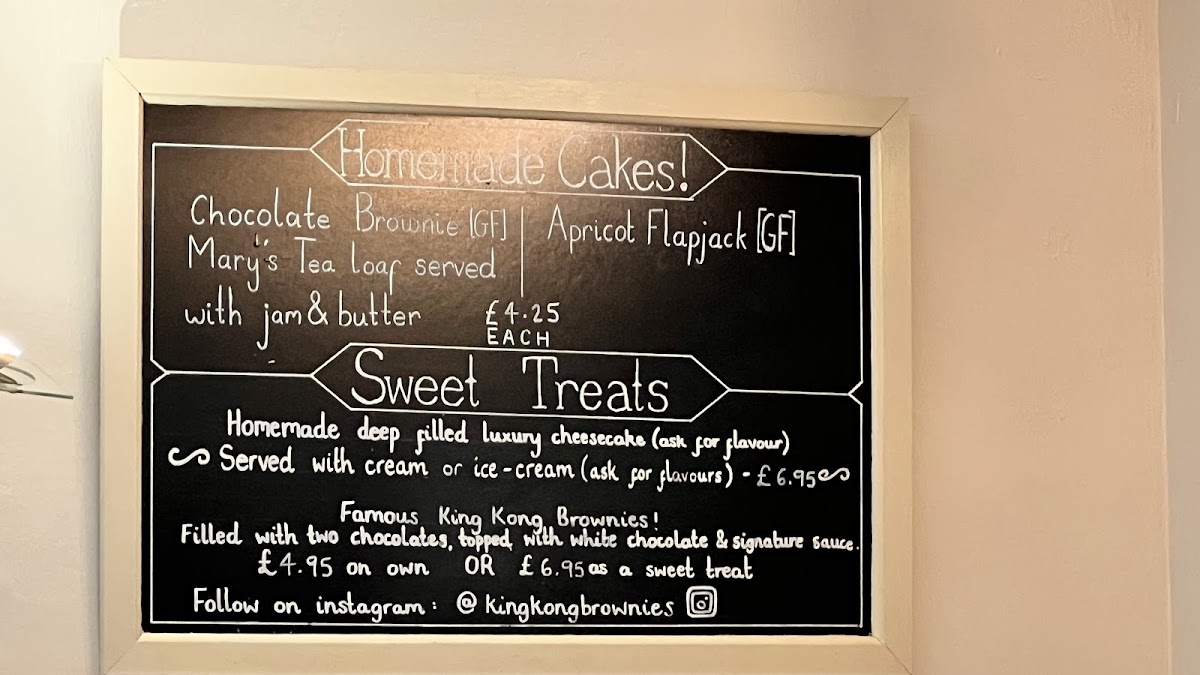 Homemade Cakes!
Chocolate Brownie [GF]
Mary's Tea loaf served
with jam & butter
Apricot Flapjack [GF]
£4.25
EACH
Sweet Treats
Homemade deep filled luxury cheesecake (ask for flavour)
Served with cream or ice-cream (ask for flavours) - £6.95
Famous King Kong Brownies!
Filled with two chocolates, topped with white chocolate & signature sauce.
£4.95 on own OR £6.95 as a sweet treat
Follow on instagram: @kingkongbrownies